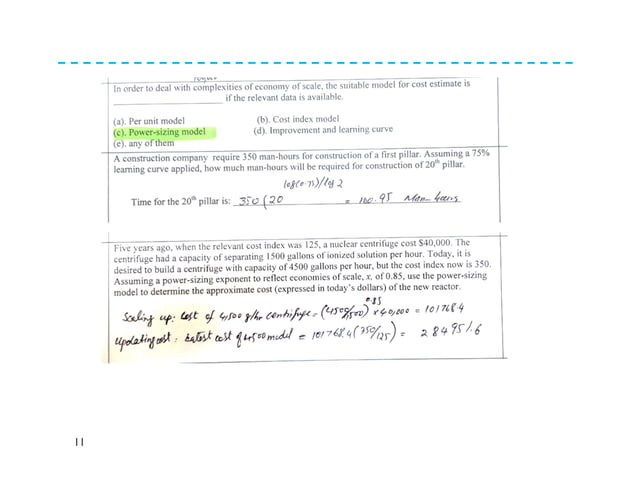 In order to deal with complexities of economy of scale, the suitable model for cost estimate is
____________________ if the relevant data is available.
(a). Per unit model (b). Cost index model
(c). Power-sizing model (d). Improvement and learning curve
(e). any of them
A construction company require 350 man-hours for construction of a first pillar. Assuming a 75%
learning curve applied, how much man-hours will be required for construction of 20th pillar.
log(0.75)/log 2
Time for the 20th pillar is: 350 (20 = 100.95 Man hours
Five years ago, when the relevant cost index was 125, a nuclear centrifuge cost $40,000. The
centrifuge had a capacity of separating 1500 gallons of ionized solution per hour. Today, it is
desired to build a centrifuge with capacity of 4500 gallons per hour, but the cost index now is 350.
Assuming a power-sizing exponent to reflect economies of scale, x, of 0.85, use the power-sizing
model to determine the approximate cost (expressed in today's dollars) of the new reactor.
0.85
Scaling up: Cost of 4500 g/hr centrifuge = (4500/1500) × 40,000 = 101768.4
Updating cost: Latest cost of 4500 model = 101768.4 (350/125) = 284951.6
11